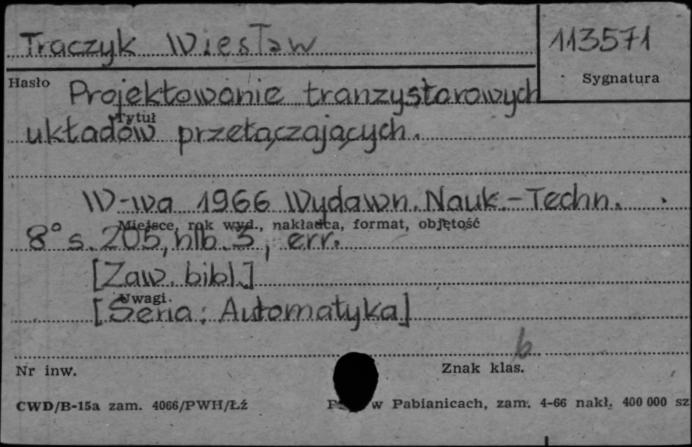 Traczyk Wiesław
113571
Hasło
Sygnatura
Projektowanie tranzystorowych
Tytuł
układów przełączających.
W-wa 1966 Wydawn. Nauk.-Techn.
Miejsce, rok wyd., nakładca, format, objętość
8° s. 205, nlb. 3, err.
[Zaw. bibl.]
Uwagi
[Seria: Automatyka]
b
Nr inw.
Znak klas.
CWD/B-15a zam. 4066/PWH/Łź
w Pabianicach, zam. 4-66 nakł. 400 000 sz